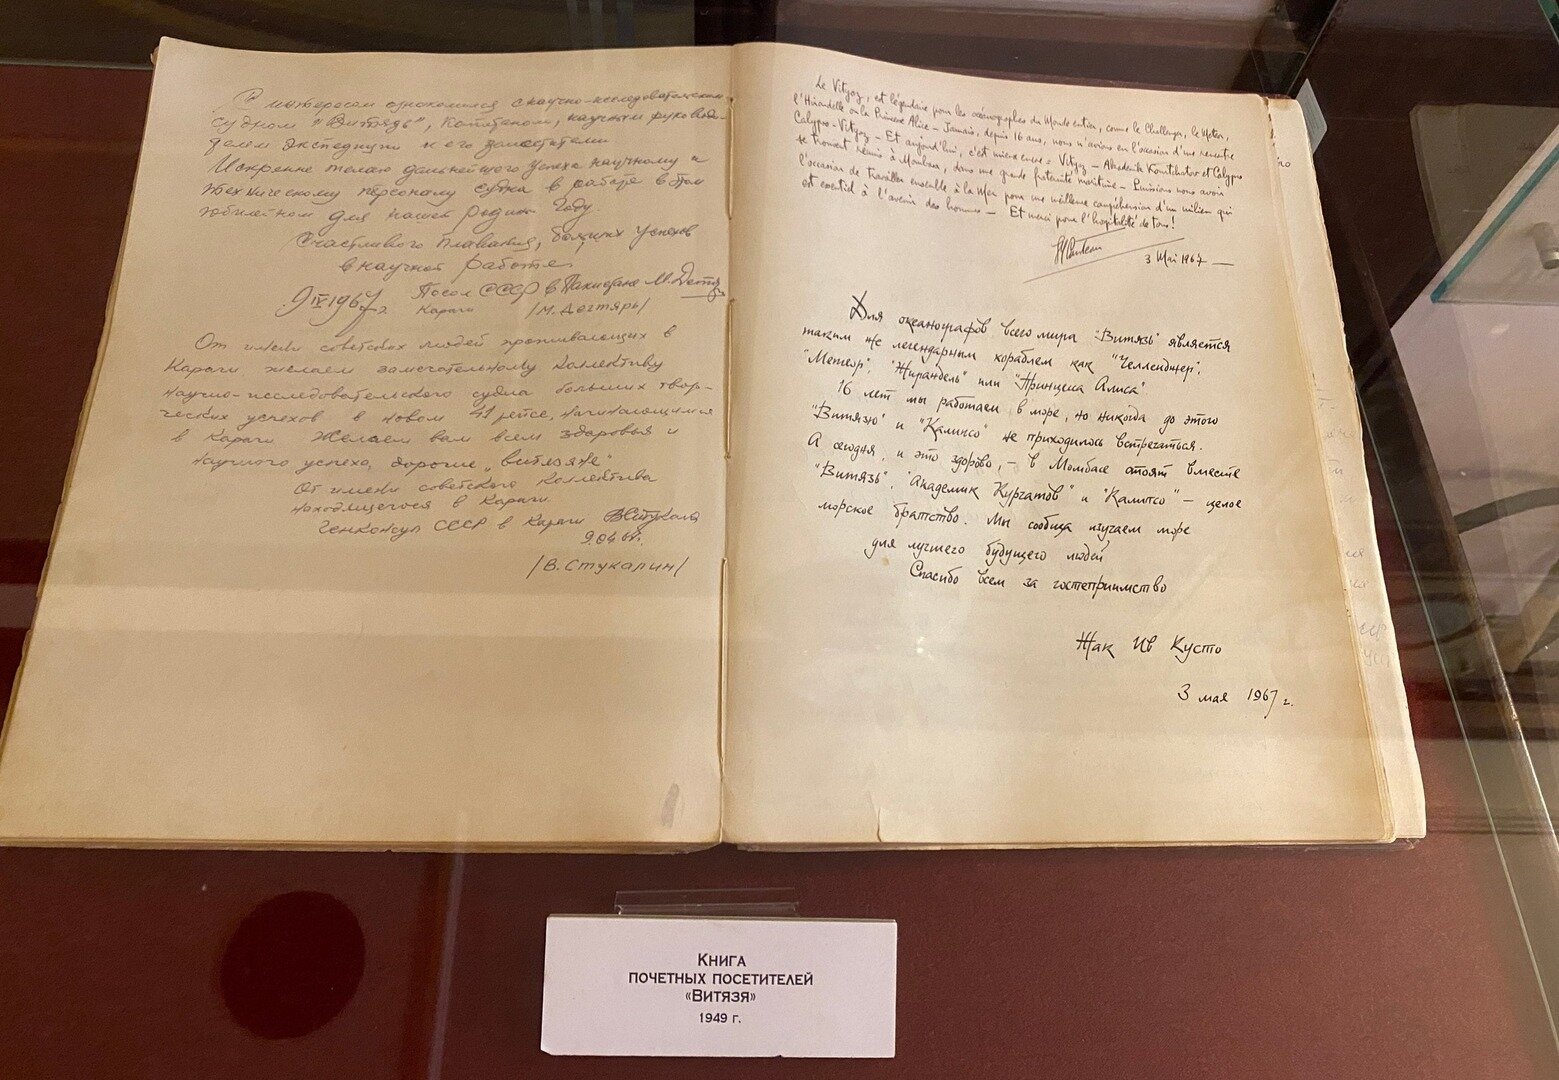 С интересом ознакомился с научно-исследовательским
судном "Витязь", капитаном, научным руково-
дителем экспедиции и его заместителем
Искренне желаю дальнейшего успеха научному и
техническому персоналу судна в работе в этом
юбилейном для нашей Родины году.
Счастливого плавания, больших успехов
в научной работе.
9 IV 1967 г. Посол СССР в Пакистане
Карачи /М. Дегтярь/
От имени советских людей проживающих в
Карачи желаем замечательному коллективу
научно-исследовательского судна больших твор-
ческих успехов в новом 41 рейсе, начинающимся
в Карачи. Желаем вам всем здоровья и
научного успеха, дорогие "витязяне"
От имени советского коллектива
находящегося в Карачи
Генконсул СССР в Карачи
9.04.67.
/В. Стукалин/
Le Vityaz, est légendaire pour les océanographes du Monde entier, comme le Challenger, le Meteor,
l'Hirondelle ou la Princesse Alice – Jamais, depuis 16 ans, nous n'avions eu l'occasion d'une rencontre
Calypso-Vityaz – Et aujourd'hui, c'est mieux encore: Vityaz – Akademik Kourtchatov et Calypso
se trouvent réunis à Mombasa, dans une grande fraternité maritime – Puissions nous avoir
l'occasion de travailler ensemble à la Mer pour une meilleure compréhension d'un milieu qui
est essentiel à l'avenir des hommes – Et merci pour l'hospitalité de tous!
3 Mai 1967 –
Для океанографов всего мира "Витязь" является
таким же легендарным кораблем как "Челленджер",
"Метеор", "Жирандель" или "Принцесса Алиса".
16 лет мы работаем в море, но никогда до этого
"Витязю" и "Калипсо" не приходилось встречаться.
А сегодня, и это здорово, – в Момбасе стоят вместе
"Витязь", "Академик Курчатов" и "Калипсо" – целое
морское братство. Мы сообща изучаем море
для лучшего будущего людей
Спасибо всем за гостеприимство
Жак Ив Кусто
3 мая 1967 г.
Книга
почетных посетителей
«Витязя»
1949 г.